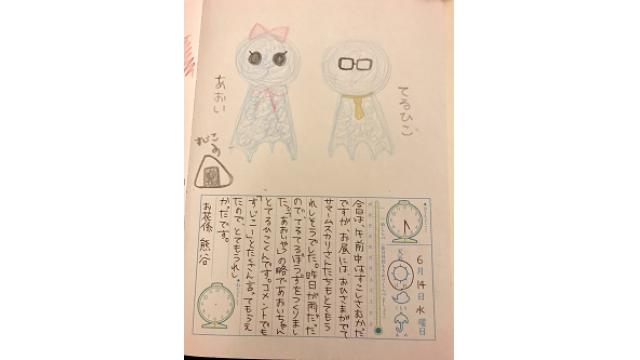 あおい
てるひこ
6月14日水曜日
今日は、午前中はすこしさむかった
ですが、お昼には、おひさまがでて
サマームスカリさんたちもとてもう
れしそうでした。昨日が雨だった
ので、てるてるぼうずをつくりまし
た。「あおいちゃん
とてるひこくんです。コメントでも
「すごーい」とたくさん言ってもらえ
たので、とてもうれし
かったです。
お花係 熊谷